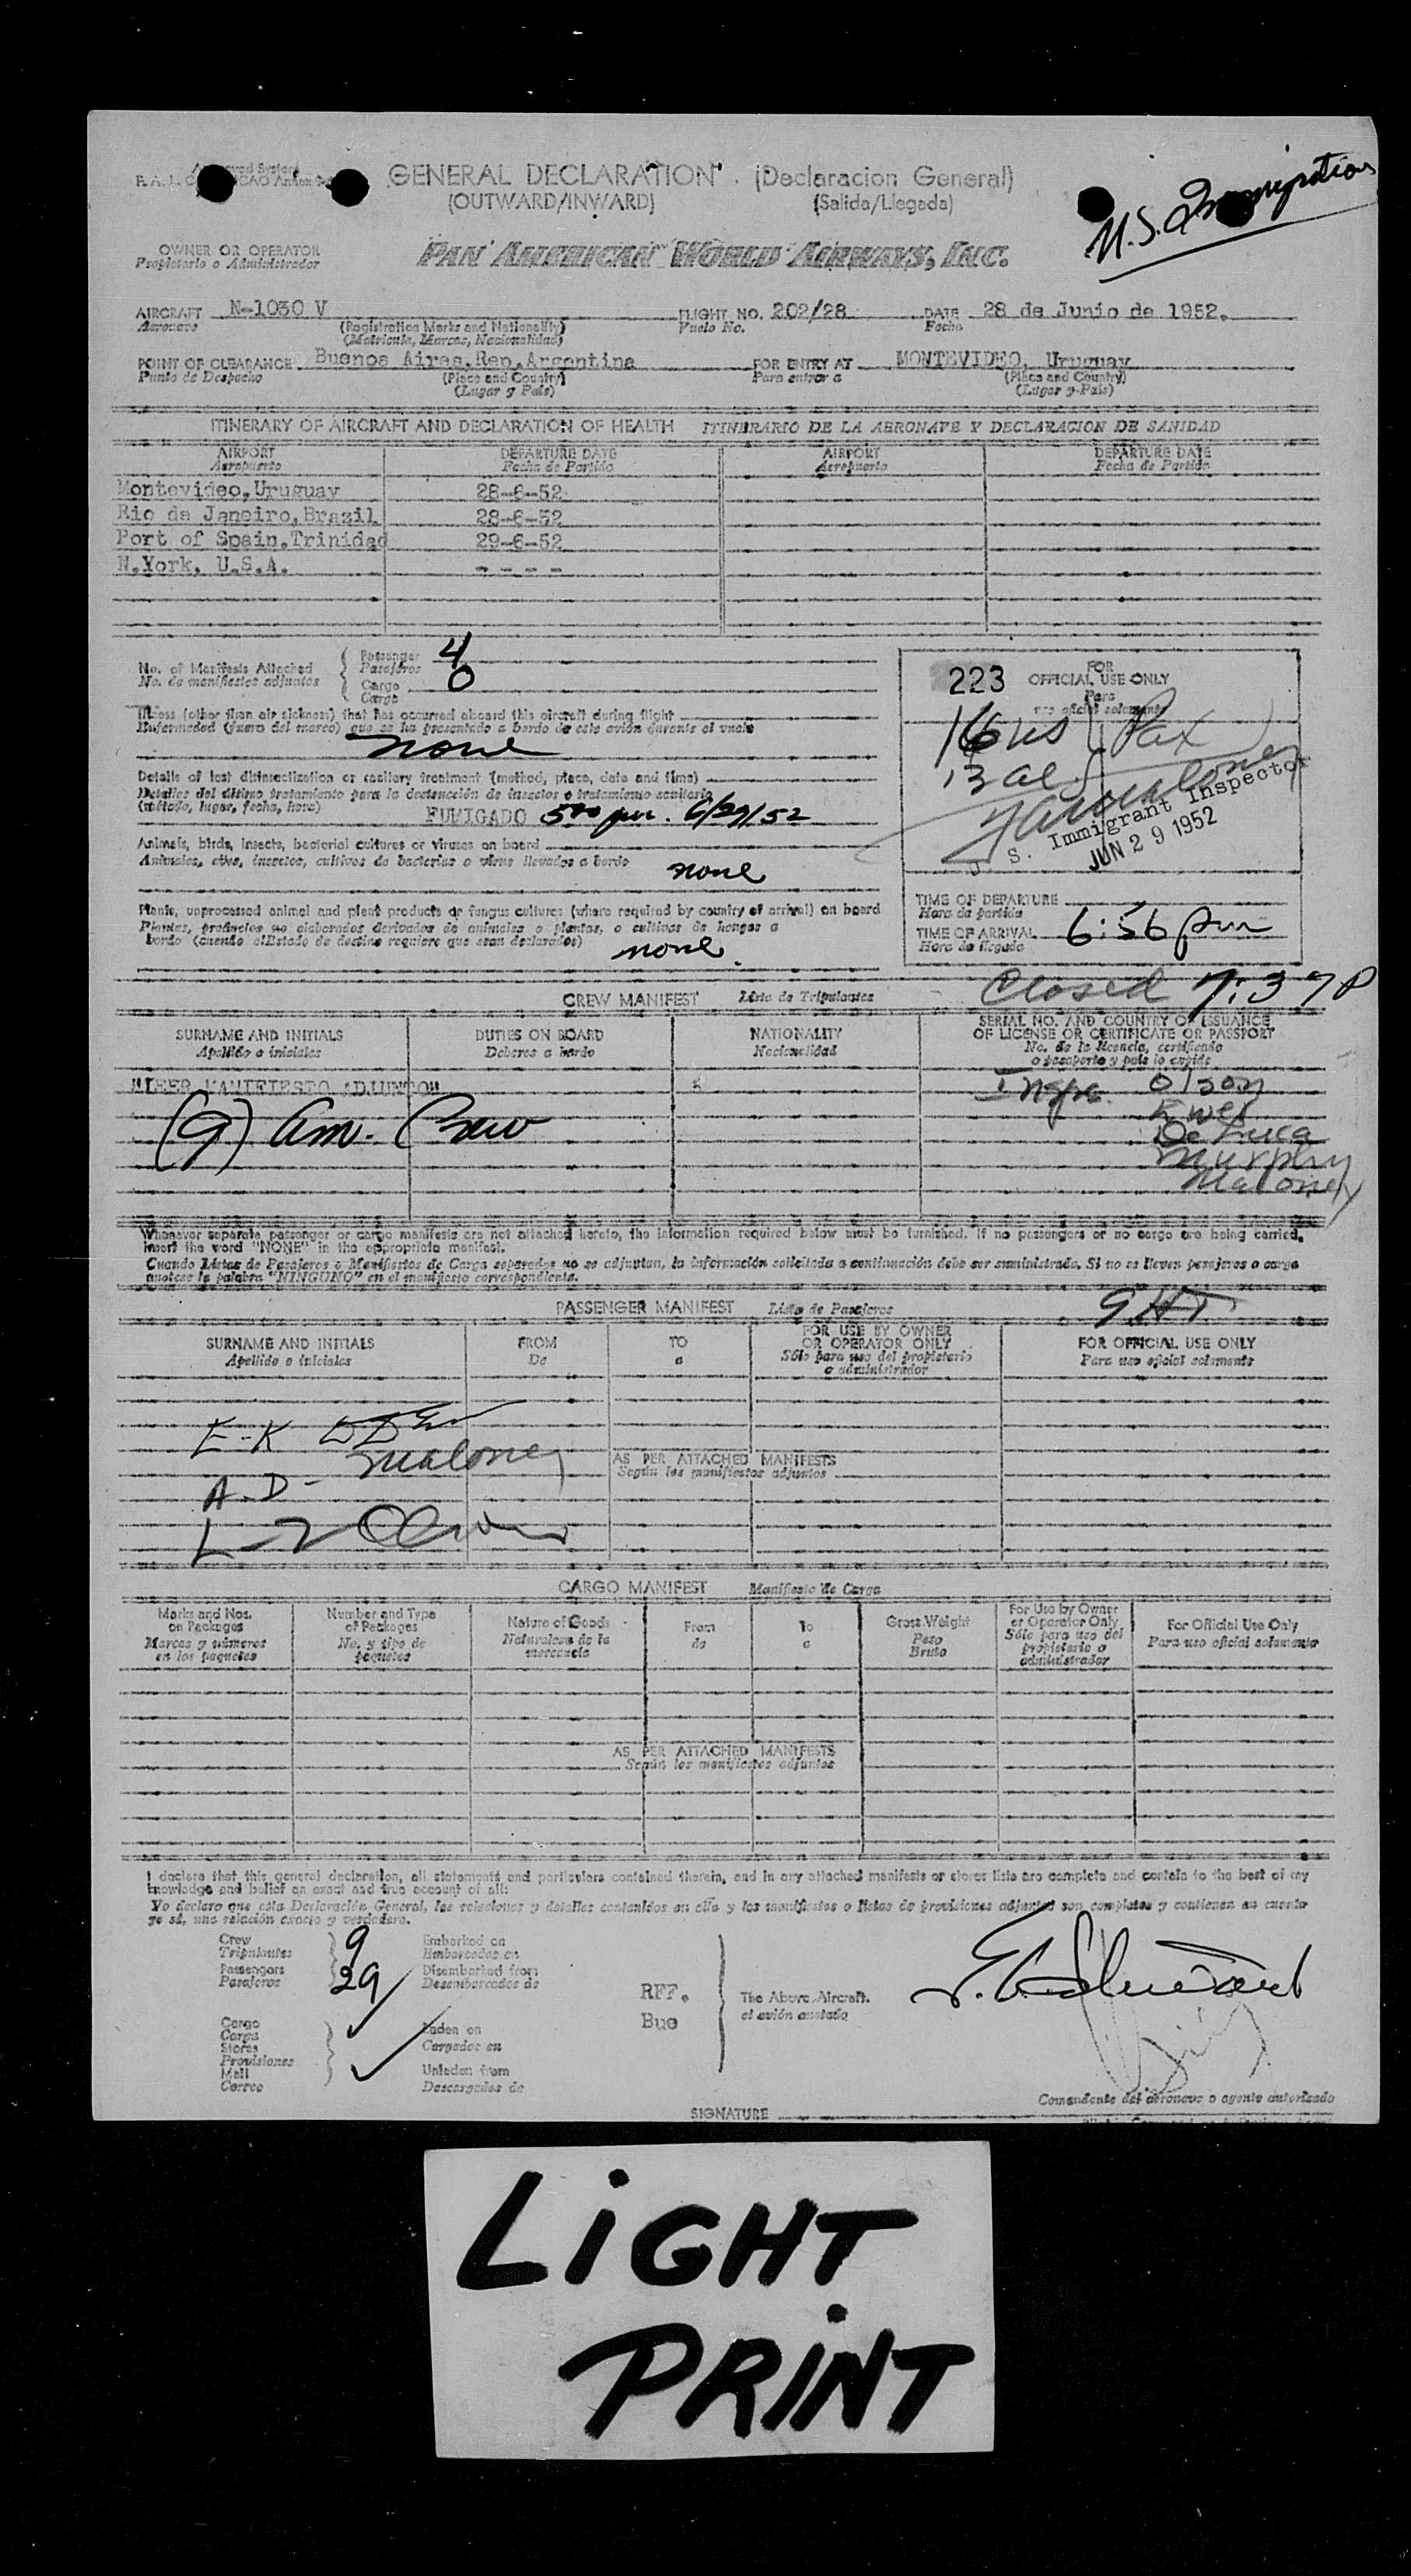 GENERAL DECLARATION (Declaracion General)
(OUTWARD/INWARD) (Salida/Llegada)
U.S. Immigration
OWNER OR OPERATOR
Propietario o Administrador
PAN AMERICAN WORLD AIRWAYS, INC.
AIRCRAFT N-1030 V FLIGHT NO. 202/28 DATE 28 de Junio de 1952.
Aeronave (Registration Marks and Nationality) Vuelo No. Fecha
(Matricula, Marcas, Nacionalidad)
POINT OF CLEARANCE Buenos Aires, Rep. Argentina FOR ENTRY AT MONTEVIDEO, Uruguay
Punto de Despacho (Place and Country) Para entrar a (Place and Country)
(Lugar y Pais) (Lugar y Pais)
ITINERARY OF AIRCRAFT AND DECLARATION OF HEALTH ITINERARIO DE LA AERONAVE Y DECLARACION DE SANIDAD
AIRPORT DEPARTURE DATE AIRPORT DEPARTURE DATE
Aeropuerto Fecha de Partida Aeropuerto Fecha de Partida
Montevideo, Uruguay 28-6-52
Rio de Janeiro, Brazil 28-6-52
Port of Spain, Trinidad 29-6-52
N.York, U.S.A. - - - -
No. of Manifests Attached Passenger 4
No. de manifiestos adjuntos Pasajeros
Cargo 0
Carga
Illness (other than air sickness) that has occurred aboard this aircraft during flight
Enfermedad (fuera del mareo) que se ha presentado a bordo de este avión durante el vuelo
none
Details of last disinsectization or sanitary treatment (method, place, date and time)
Detalles del último tratamiento para la destrucción de insectos o tratamiento sanitario
(método, lugar, fecha, hora)
FUMIGADO 500 pm. 6/29/52
Animals, birds, insects, bacterial cultures or viruses on board
Animales, aves, insectos, cultivos de bacterias o virus llevados a bordo none
Plants, unprocessed animal and plant products or fungus cultures (where required by country of arrival) on board
Plantas, productos no elaborados derivados de animales o plantas, o cultivos de hongos a
bordo (cuando el Estado de destino requiere que sean declarados) none.
223 FOR
OFFICIAL USE ONLY
Para
uso oficial solamente
16 us Pax
13 al
Immigrant Inspector
JUN 29 1952
TIME OF DEPARTURE
Hora de partida
TIME OF ARRIVAL 6:56 pm
Hora de llegada
Closed 7:37 P
CREW MANIFEST Lista de Tripulantes
SURNAME AND INITIALS DUTIES ON BOARD NATIONALITY SERIAL NO. AND COUNTRY OF ISSUANCE
OF LICENSE OR CERTIFICATE OR PASSPORT
Apellido e iniciales Deberes a bordo Nacionalidad No. de la licencia, certificado
o pasaporte y pais lo expide
MANIFIESTO ADJUNTO
(9) Am. Crew
Insps. Olson
De Luca
Murphy
Maloney
Whenever separate passenger or cargo manifests are not attached hereto, the information required below must be furnished. If no passengers or no cargo are being carried,
insert the word "NONE" in the appropriate manifest.
Cuando Listas de Pasajeros o Manifiestos de Carga separados no se adjuntan, la información solicitada a continuación debe ser suministrada. Si no se lleven pasajeros o carga
anotese la palabra "NINGUNO" en el manifiesto correspondiente.
PASSENGER MANIFEST Lista de Pasajeros
SURNAME AND INITIALS FROM TO FOR USE BY OWNER
OR OPERATOR ONLY FOR OFFICIAL USE ONLY
Apellido e iniciales De a Sólo para uso del propietario
o administrador Para uso oficial solamente
E-K
Maloney
A-D-
L-Z
AS PER ATTACHED MANIFESTS
Según los manifiestos adjuntos
CARGO MANIFEST Manifiesto de Carga
Marks and Nos.
on Packages
Marcas y números
en los paquetes
Number and Type
of Packages
No. y tipo de
paquetes
Nature of Goods
Naturaleza de la
mercancía
From
de
To
a
Gross Weight
Peso
Bruto
For Use by Owner
or Operator Only
Sólo para uso del
propietario o
administrador
For Official Use Only
Para uso oficial solamente
AS PER ATTACHED MANIFESTS
Según los manifiestos adjuntos
I declare that this general declaration, all statements and particulars contained therein, and in any attached manifests or stores lists are complete and contain to the best of my
knowledge and belief an exact and true account of all:
Yo declaro que esta Declaración General, las relaciones y detalles contenidos en ella y los manifiestos o listas de provisiones adjuntas son completas y contienen en cuanto
yo sé, una relación exacta y verdadera.
Crew 9 Embarked on
Tripulantes Embarcados en
Passengers 29 Disembarked from
Pasajeros Desembarcados de
RFF.
Bue
The Above Aircraft.
el avión anotado
Cargo
Carga Laden on
Stores Cargados en
Provisiones
Mail Unladen from
Correo Descargados de
Comandante del aeronave o agente autorizado
SIGNATURE
LIGHT
PRINT